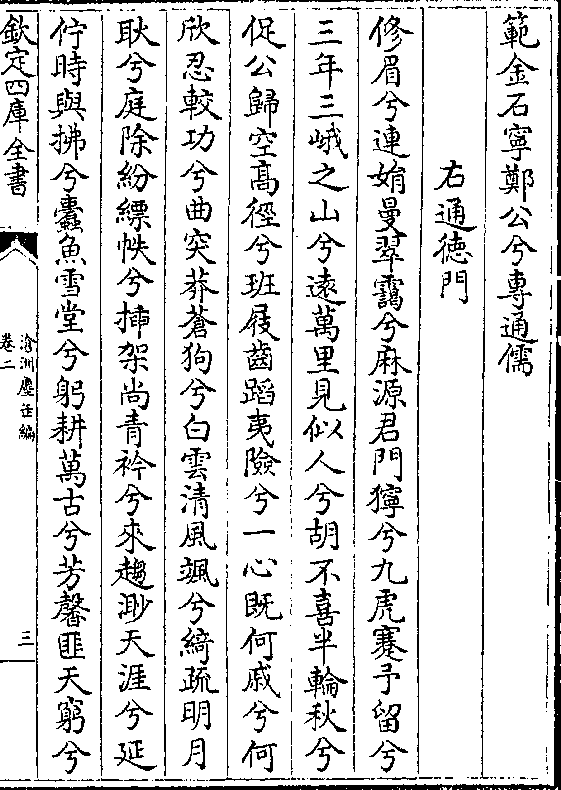 範金石寧鄭公兮專通儒
右通徳門
修眉兮連娟曼翠靄兮麻源君門獰兮九虎蹇予留兮
三年三峨之山兮逺萬里見似人兮胡不喜半輪秋兮
促公歸空髙徑兮班屐齒蹈夷險兮一心既何戚兮何
欣忍較功兮曲突莽蒼狗兮白雲清風颯兮綺疏明月
耿兮庭除紛縹帙兮揷架尚青衿兮來趨渺天涯兮延
佇時與拂兮蠹魚雪堂兮躬耕萬古兮芳馨匪天窮兮
欽定四庫全書
滄洲塵缶編
卷二
三